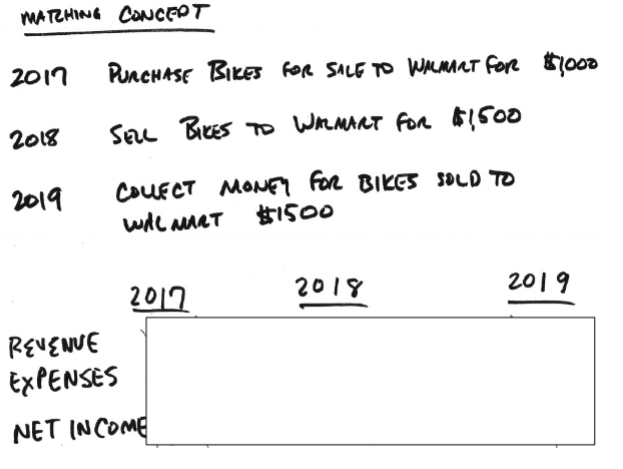 MATCHING CONCEPT
2017 PURCHASE BIKES FOR SALE TO WALMART FOR $1,000
2018 SELL BIKES TO WALMART FOR $1,500
2019 COLLECT MONEY FOR BIKES SOLD TO
WALMART $1500
2017 2018 2019
REVENUE
EXPENSES
NET INCOME